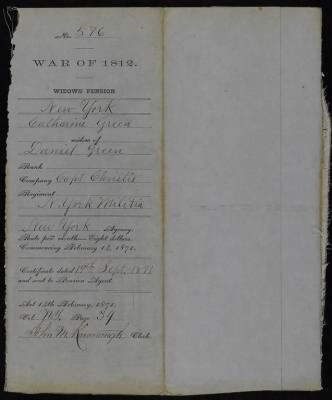 No. 576
WAR OF 1812.
WIDOWS PENSION
New York
Catharine Green
widow of
Daniel Green
Rank
Company Capt
Regiment
N. York Militia
New York Agency.
Rate per month—Eight dollars.
Commencing February 14, 1871.
Certificate dated Sept.
and sent to Pension Agent
Act 14th February, 1871.
Vol. Page 34
John M. Clerk.